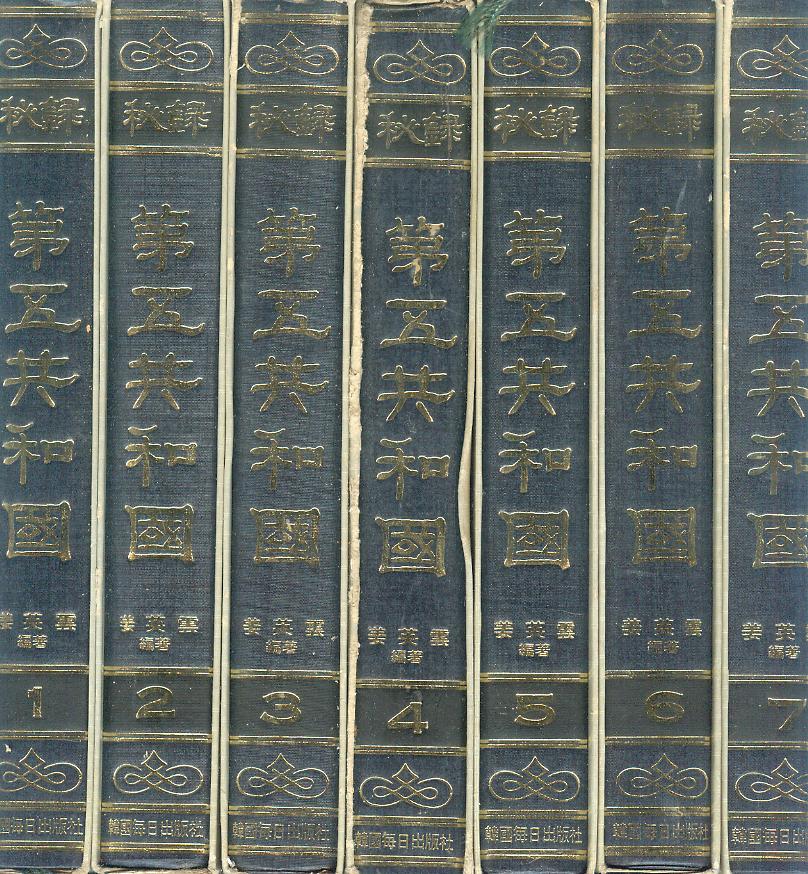 秘錄
第五共和國
姜英雲
編著
1
國每日出版社
秘錄
第五共和國
姜英雲
編著
2
韓國每日出版社
秘錄
第五共和國
姜英雲
編著
3
韓國每日出版社
秘錄
第五共和國
姜英雲
編著
4
韓國每日出版社
秘錄
第五共和國
姜英雲
編著
5
韓國每日出版社
秘錄
第五共和國
姜英雲
編著
6
韓國每日出版社
秘錄
第五共和國
姜英
編著
7
韓國每日出